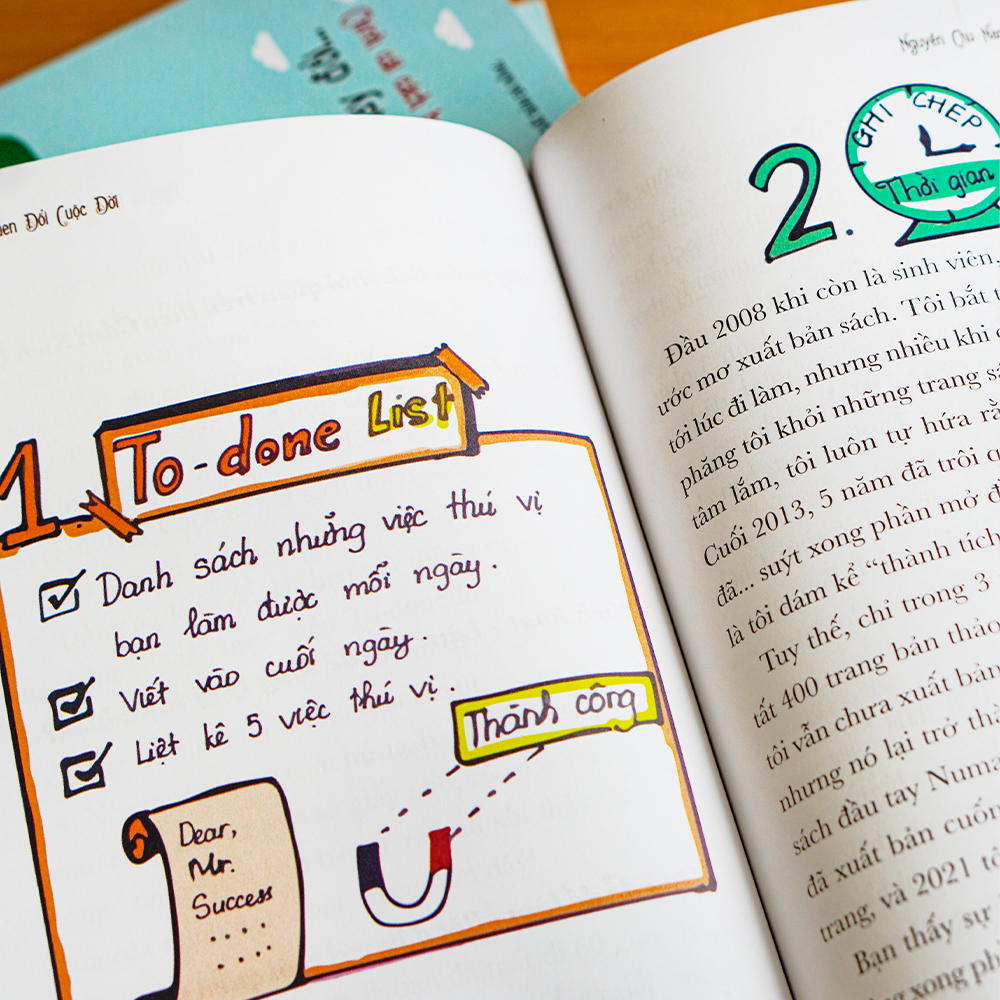 Đổi Cuộc Đời
1. To-done List
Danh sách những việc thú vị
bạn làm được mỗi ngày.
Viết vào cuối ngày.
Liệt kê 5 việc thú vị.
Thành công
Dear,
Mr.
Success
....
...
Nguyễn Chu
2. GHI CHÉP
Thời gian
Đầu 2008 khi còn là sinh viên,
ước mơ xuất bản sách. Tôi bắt
tới lúc đi làm, nhưng nhiều khi
phăng tôi khỏi những trang
tâm lắm, tôi luôn tự hứa
Cuối 2013, 5 năm đã trôi
đã... suýt xong phần mở
là tôi dám kể “thành tích
Tuy thế, chỉ trong 3
tất 400 trang bản thảo
tôi vẫn chưa xuất bản
nhưng nó lại trở
sách đầu tay Numa
đã xuất bản cuốn
trang, và 2021
Bạn thấy sự
xong